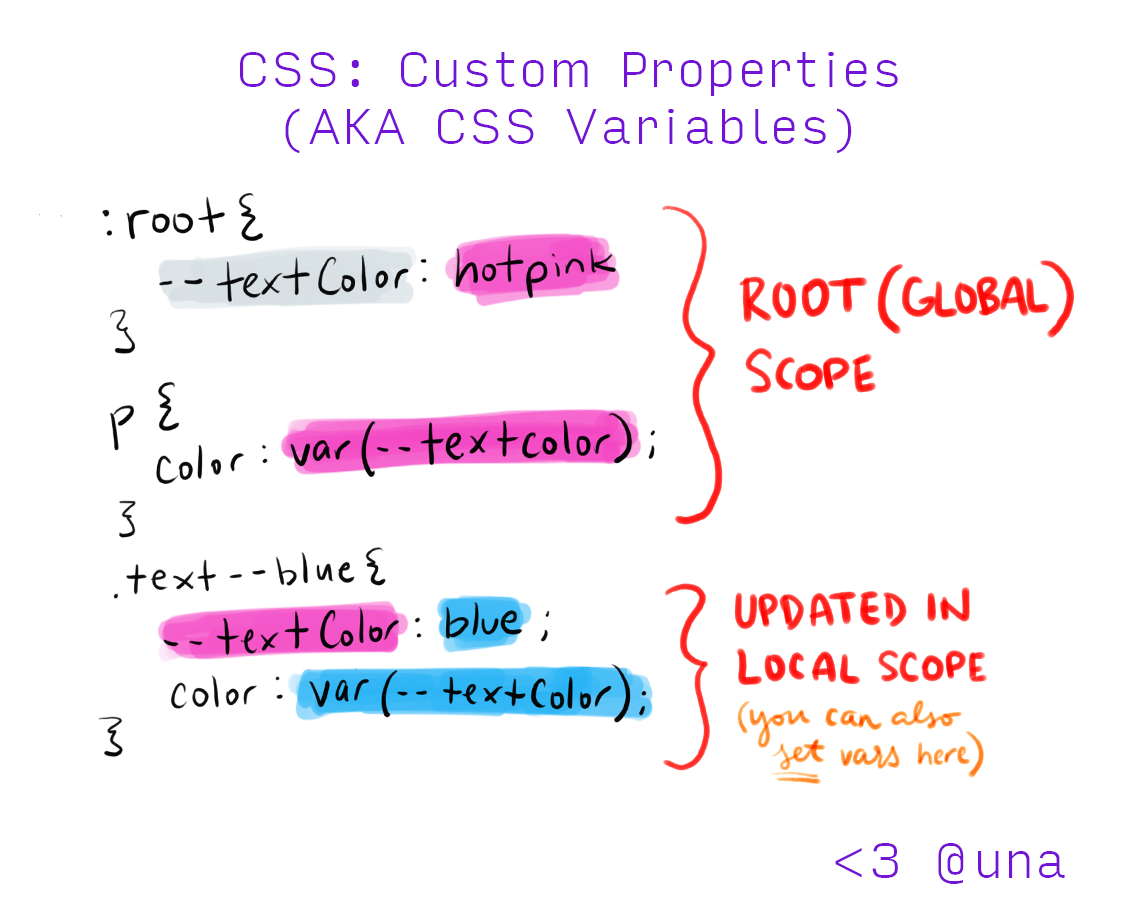 CSS: Custom Properties
(AKA CSS Variables)
:root {
--textColor: hotpink
}
ROOT (GLOBAL)
SCOPE
p {
color: var(--textcolor);
}
.text--blue {
--textColor: blue;
color: var(--textColor);
}
UPDATED IN
LOCAL SCOPE
(you can also
set vars here)
<3 @una